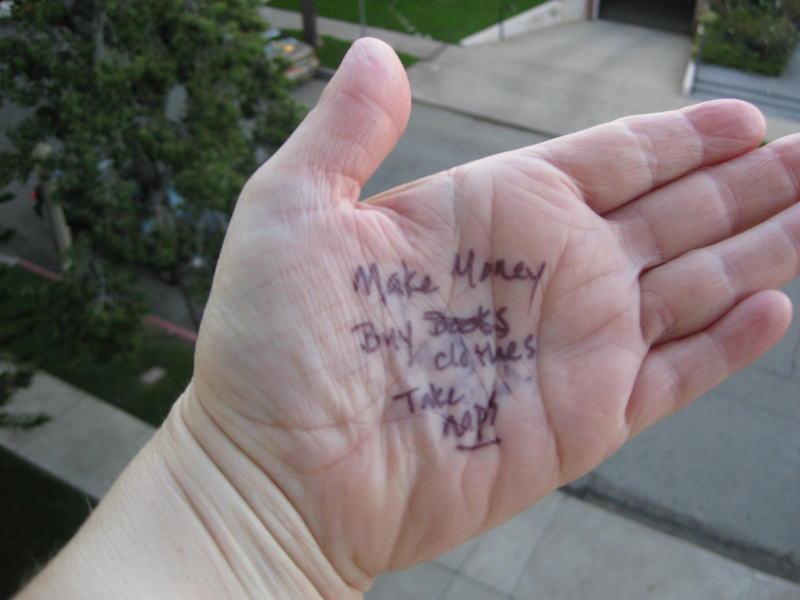 Make Money
Buy Books
clothes
Take
naps